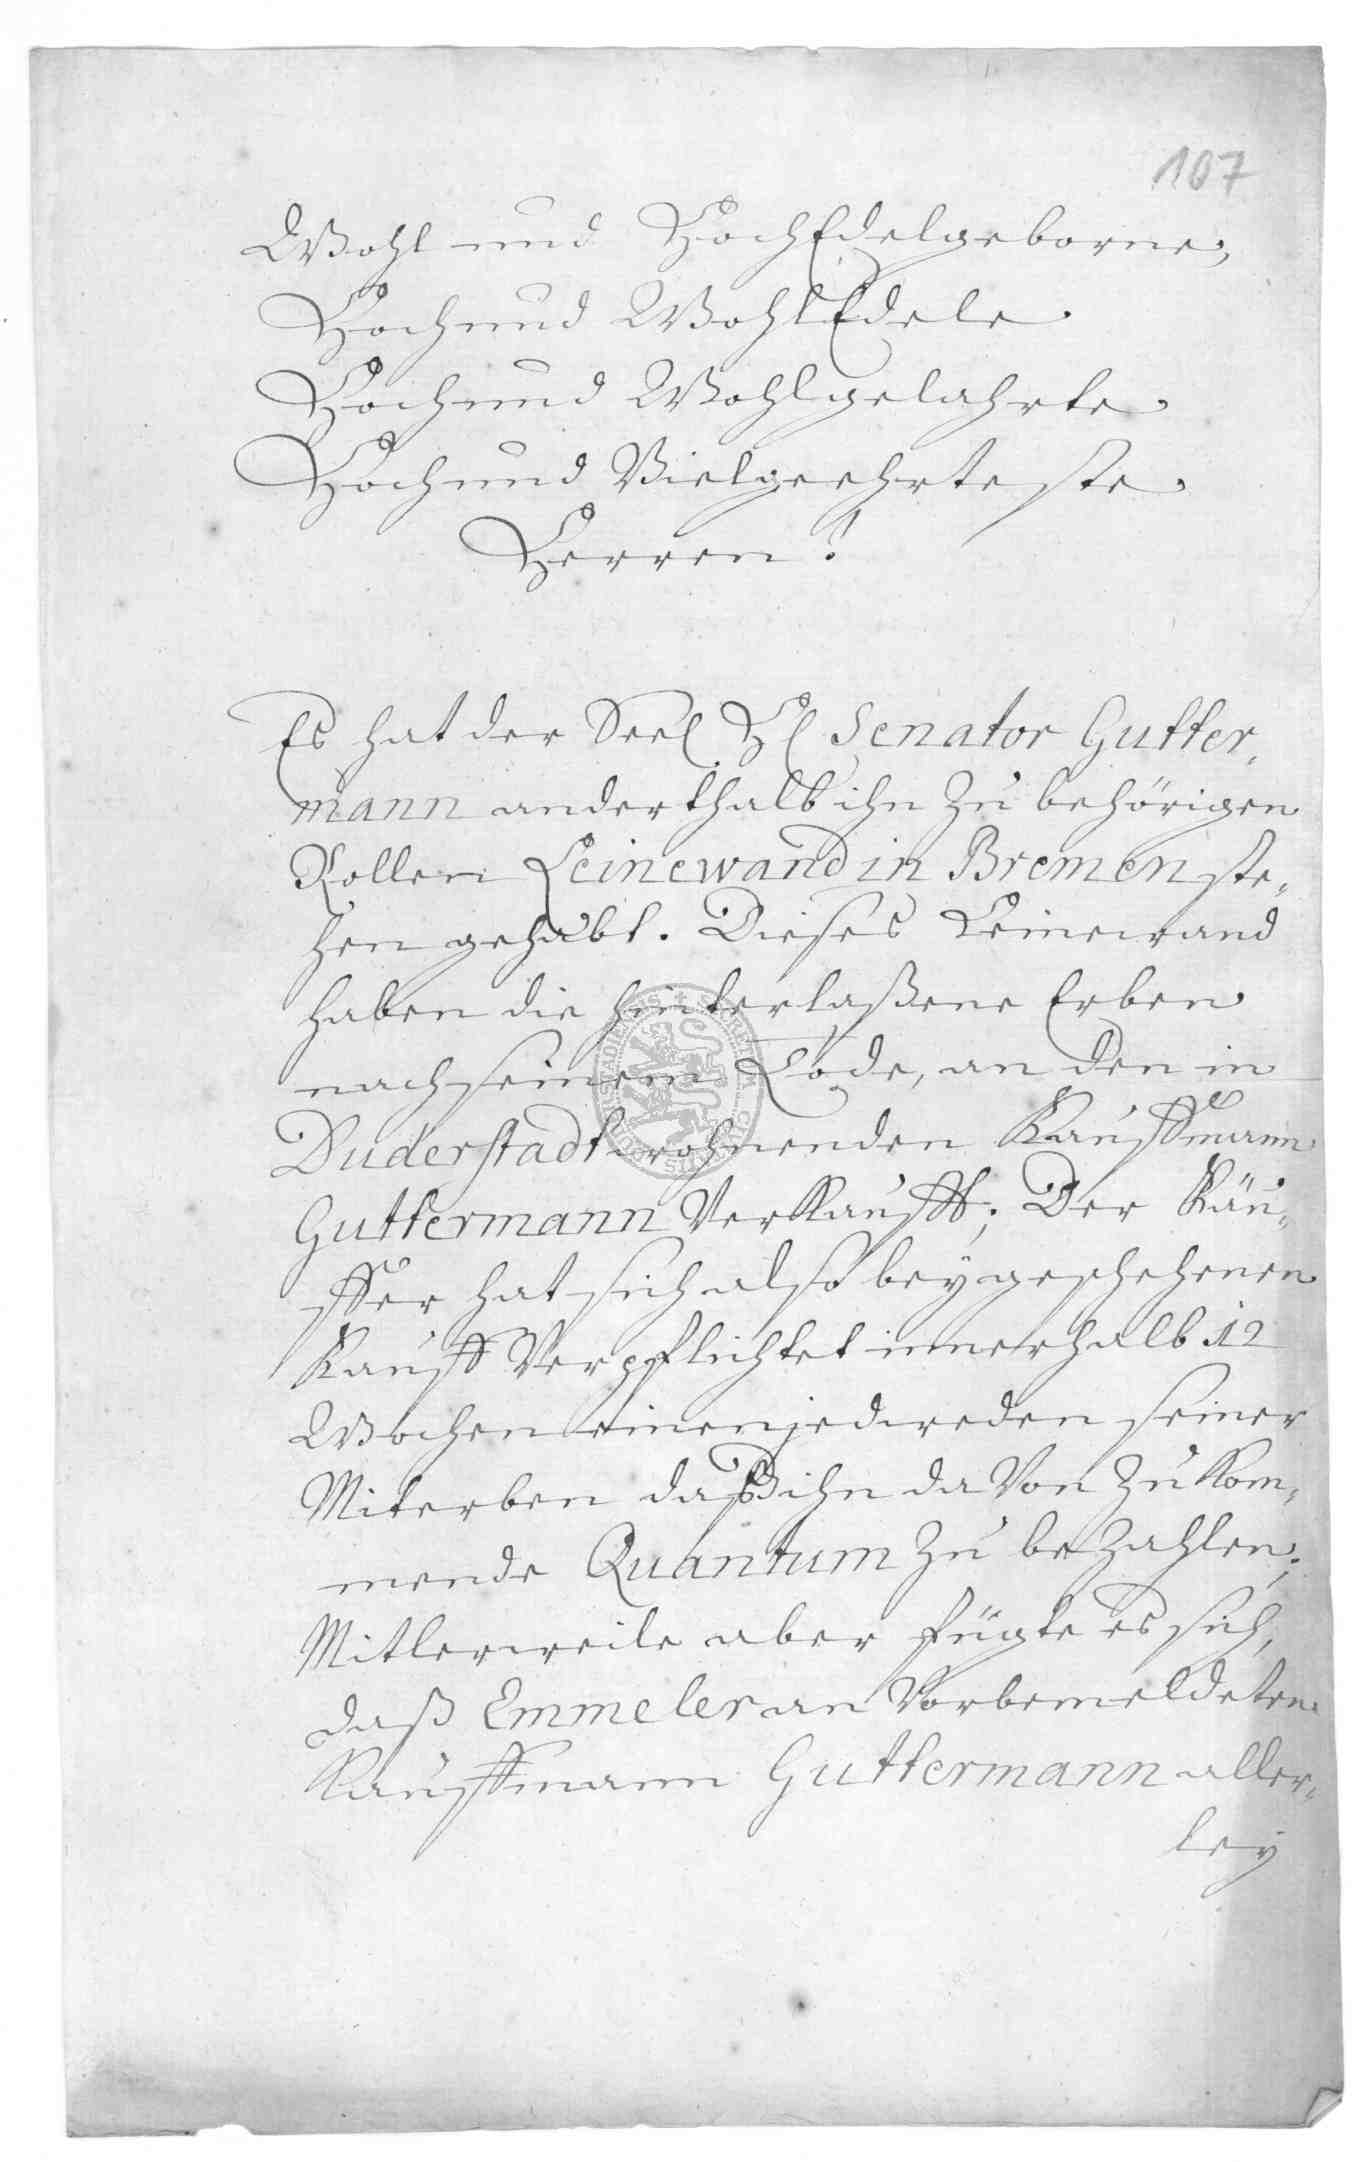 107
Wohl und HochEdelgeborne,
Hoch und WohlEdele
Hoch und Wohlgelahrte
Hoch und Vielgeehrteste
Herren!
Es hat der Seel H Senator Gutter,
mann anderthalb ihn zu behörigen
Rollen Leinewand in Bremen ste,
hen gehabt. Dieses Leinewand
haben die hinterlaßene Erben
nach seinem Tode, an den in
Duderstadt wohnenden Kauffmann
Guttermann Verkaufft; Der Käu,
ffer hat sich also bey geschehenen
Kauff Verpflichtet innerhalb 12
Wochen einen jedweden seiner
Miterben daß ihn da Von zu kom,
mende Quantum zu bezahlen;
Mitlerweile aber fügte es sich,
daß Emmeler an Vorbemeldeten
Kauffmann Guttermann aller,
ley